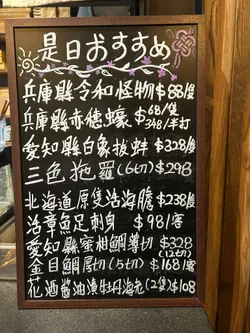 是日おすすめ
兵庫縣令和怪物$88/隻
兵庫縣赤穗蠔$68/隻
348/半打
愛知縣白象拔蚌$328/
三色拖羅(6切)$298
北海道原隻浩海膽$238/
活章魚足刺身 $98/客
愛知縣蜜柑鯛薄切$328
(12切)
金目鯛厚切(5切)$168/客
花酒醬油漬牡丹海老(2隻)$108